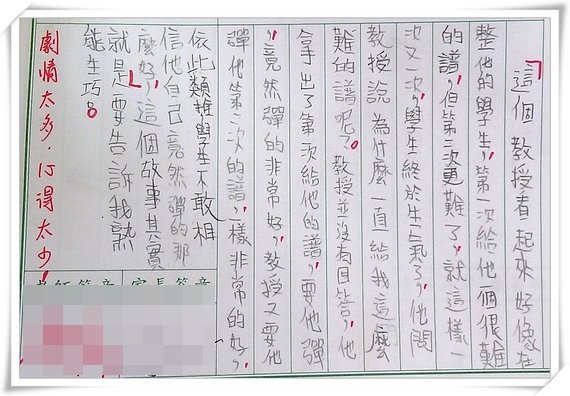 「這個教授看起來好像在
整他的學生,第一次給他一個很難
的譜,但第二次更難了,就這樣一
次又一次,學生終於生氣了,他問
教授說為什麼一直給我這麼
難的譜呢?教授並沒有回答,他
拿出了第次給他的譜,要他彈
,竟然彈的非常好,教授又要他
彈他第二次的譜,一樣非常的好,
依此類推學生不敢相
信他自己竟然彈的那
麼好,」這個故事其實
就是要告訴我熟
能生巧。
劇情太多,心得太少!
家長簽章